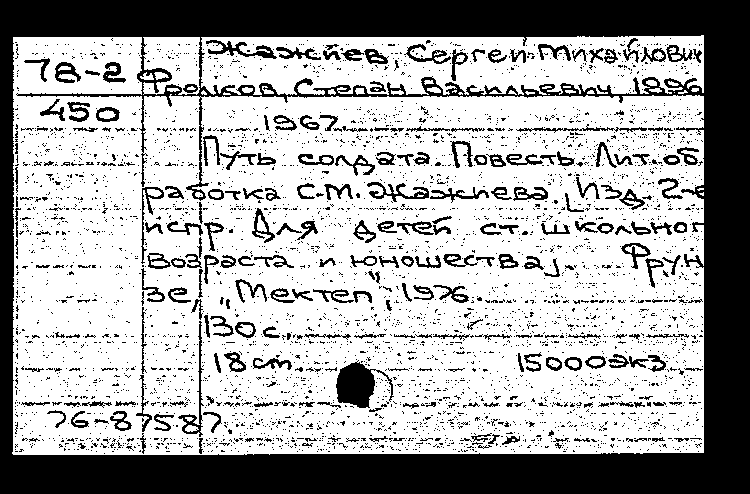 Жажиев, Сергей Михайлович
78-2 Фролков, Степан Васильевич, 1896
450 1967.
Путь солдата. Повесть. Лит. об
работка С.М. Жажиева. [Изд. 2-е
испр. Для детей ст. школьног
возраста и юношества]. Фрун
зе, „Мектеп", 1976.
130 с.
18 cm. 15000 экз
76-87587.